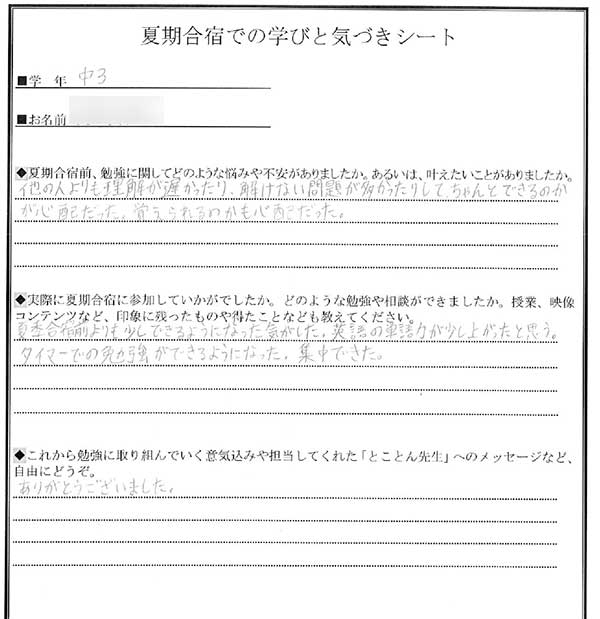 夏期合宿での学びと気づきシート
■学 年 中3
■お名前
◆夏期合宿前、勉強に関してどのような悩みや不安がありましたか。あるいは、叶えたいことがありましたか。
他の人よりも理解が遅かったり、解けない問題が多かったりしてちゃんとできるのか
が心配だった。覚えられるのかも心配だった。
◆実際に夏期合宿に参加していかがでしたか。どのような勉強や相談ができましたか。授業、映像
コンテンツなど、印象に残ったものや得たことなども教えてください。
夏季合宿前よりも少しできるようになった気がした。英語の単語力が少し上がったと思う。
タイマーでの勉強ができるようになった。集中できた。
◆これから勉強に取り組んでいく意気込みや担当してくれた「とことん先生」へのメッセージなど、
自由にどうぞ。
ありがとうございました。